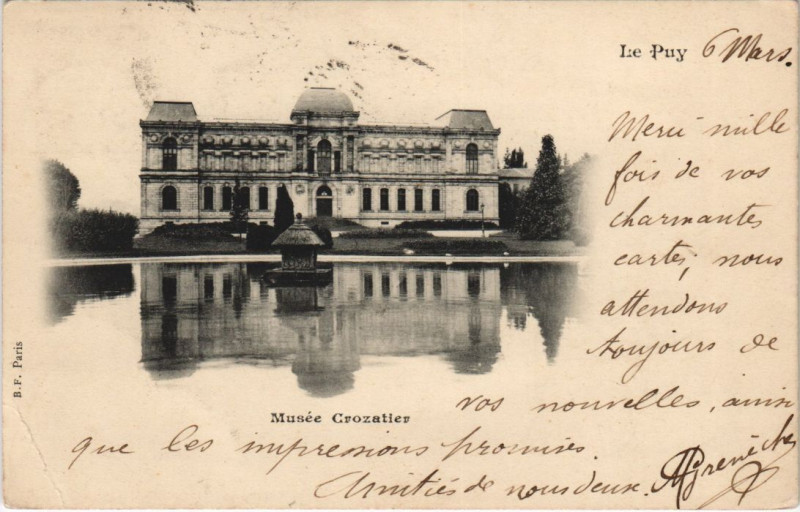 Le Puy 6 Mars.
Merci mille
fois de vos
charmantes
cartes, nous
attendons
toujours de
vos nouvelles, ainsi
que les impressions promises.
Amitiés de nous deux.
Musée Crozatier
B.F. Paris